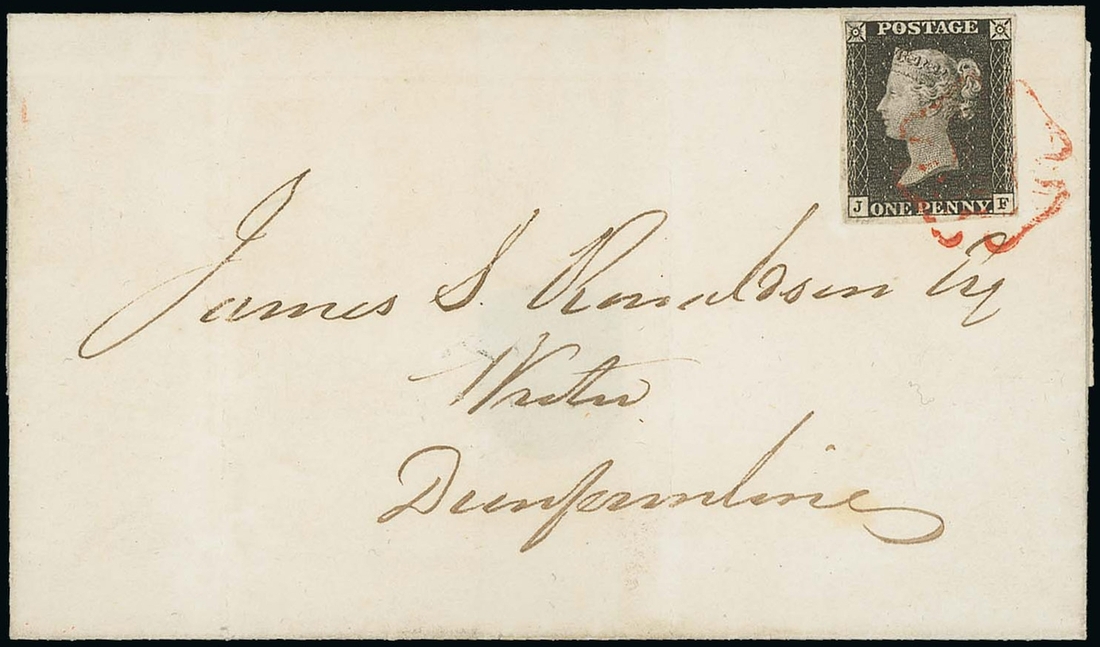 POSTAGE
J ONE PENNY F
James S. Ronaldson Esq
Writer
Dunfermline